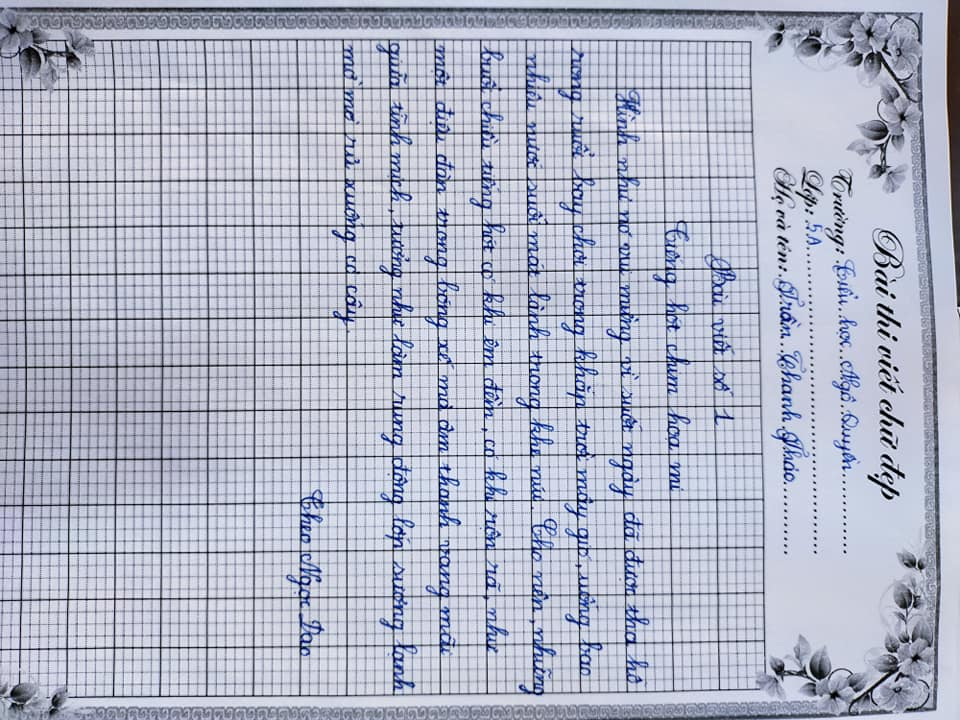 Bài thi viết chữ đẹp
Trường: Tiểu học Ngô Quyền
Lớp: 5A
Họ và tên: Trần Thanh Thảo
Bài viết số 1
Tiếng hót chim hoạ mi
Hình như nó vui mừng vì suốt ngày đã được tha hồ
rong ruổi bay chơi trong khắp trời mây gió, uống bao
nhiêu nước suối mát lành trong khe núi. Cho nên, những
buổi chiều tiếng hót có khi êm đềm, có khi rộn rã, như
một điệu đàn trong bóng xế mà âm thanh vang mãi
giữa tĩnh mịch, tưởng như làm rung động lớp sương lạnh
mờ mờ rủ xuống cỏ cây.
Theo Ngọc Dao